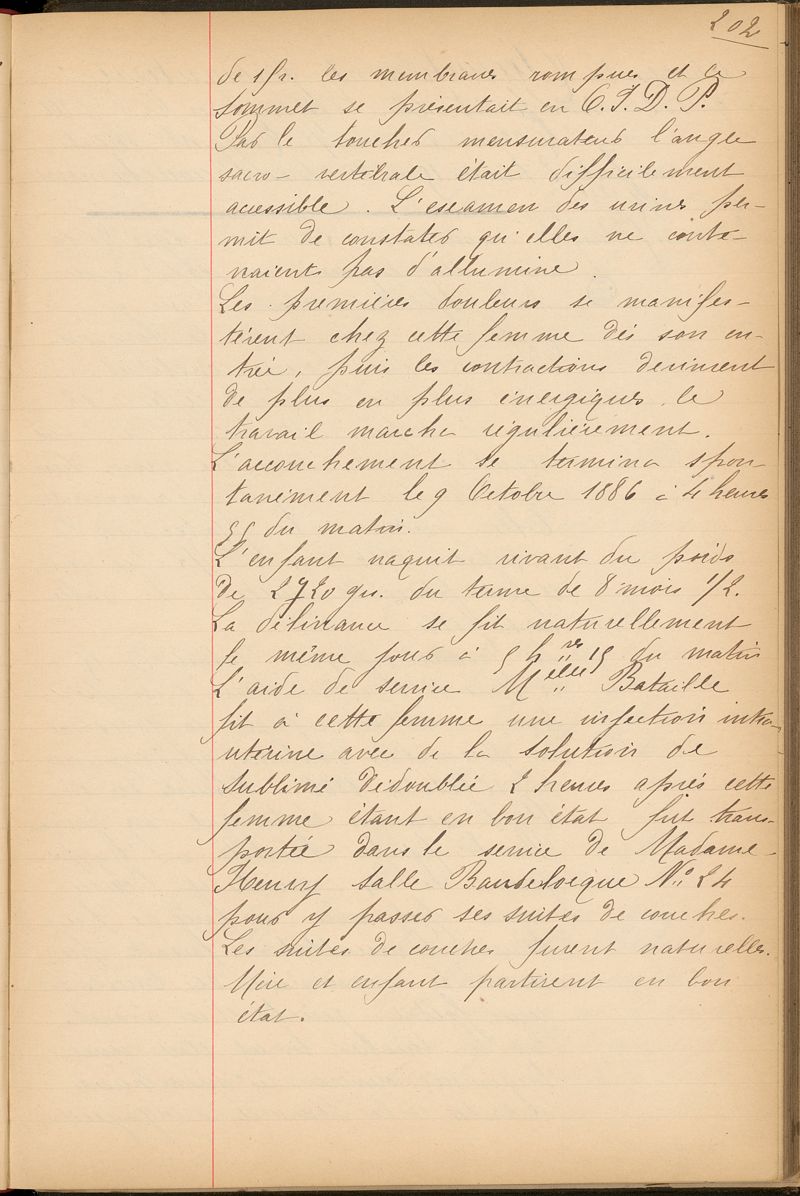 202
de 1 fr. les membranes rompues et le
sommet se présentait en O. I. D. P.
Par le toucher mensurateur l'angle
sacro-vertébrale était difficilement
accessible. L'examen des urines per-
mit de constater qu'elles ne conte-
naient pas d'albumine.
Les premières douleurs se manifes-
tèrent chez cette femme dès son en-
trée, puis les contractions devinrent
de plus en plus énergiques le
travail marcha régulièrement.
L'accouchement se termina spon-
tanément le 9 Octobre 1886 à 4 heures
55 du matin.
L'enfant naquit vivant du poids
de 2720 grs. du terme de 8 mois 1/2.
La délivrance se fit naturellement
le même jour à 5 hres 15 du matin
L'aide de service Melle Bataille
fit à cette femme une injection intra-
utérine avec de la solution de
sublimé dédoublée 2 heures après cette
femme étant en bon état fut trans-
portée dans le service de Madame
Henry salle Baudelocque No 24
pour y passer ses suites de couches.
Les suites de couches furent naturelles.
Mère et enfant partirent en bon
état.